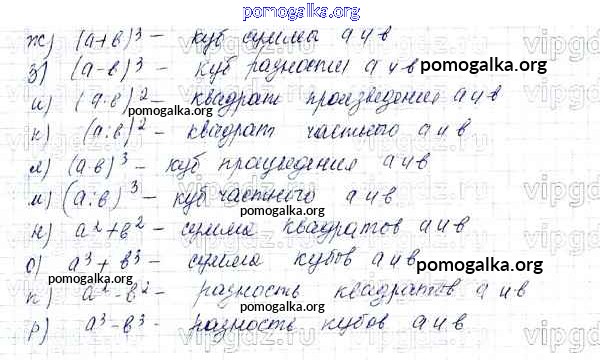 pomogalka.org
ж) (a+в)³ – куб суммы a и в
з) (a-в)³ – куб разности a и в
pomogalka.org
и) (a·в)² – квадрат произведения a и в
pomogalka.org
к) (a:в)² – квадрат частного a и в
л) (a·в)³ – куб произведения a и в
м) (a:в)³ – куб частного a и в
pomogalka.org
н) a²+в² – сумма квадратов a и в
о) a³+в³ – сумма кубов a и в
pomogalka.org
pomogalka.org
п) a²-в² – разность квадратов a и в
р) a³-в³ – разность кубов a и в
pomogalka.org